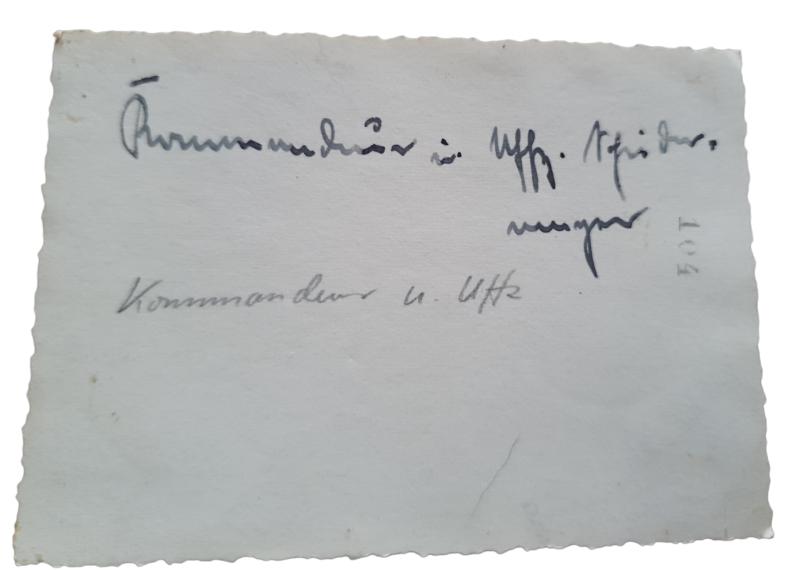 Kommandeur u. Uffz. Schieder-
Kommandeur u. Uffz
104